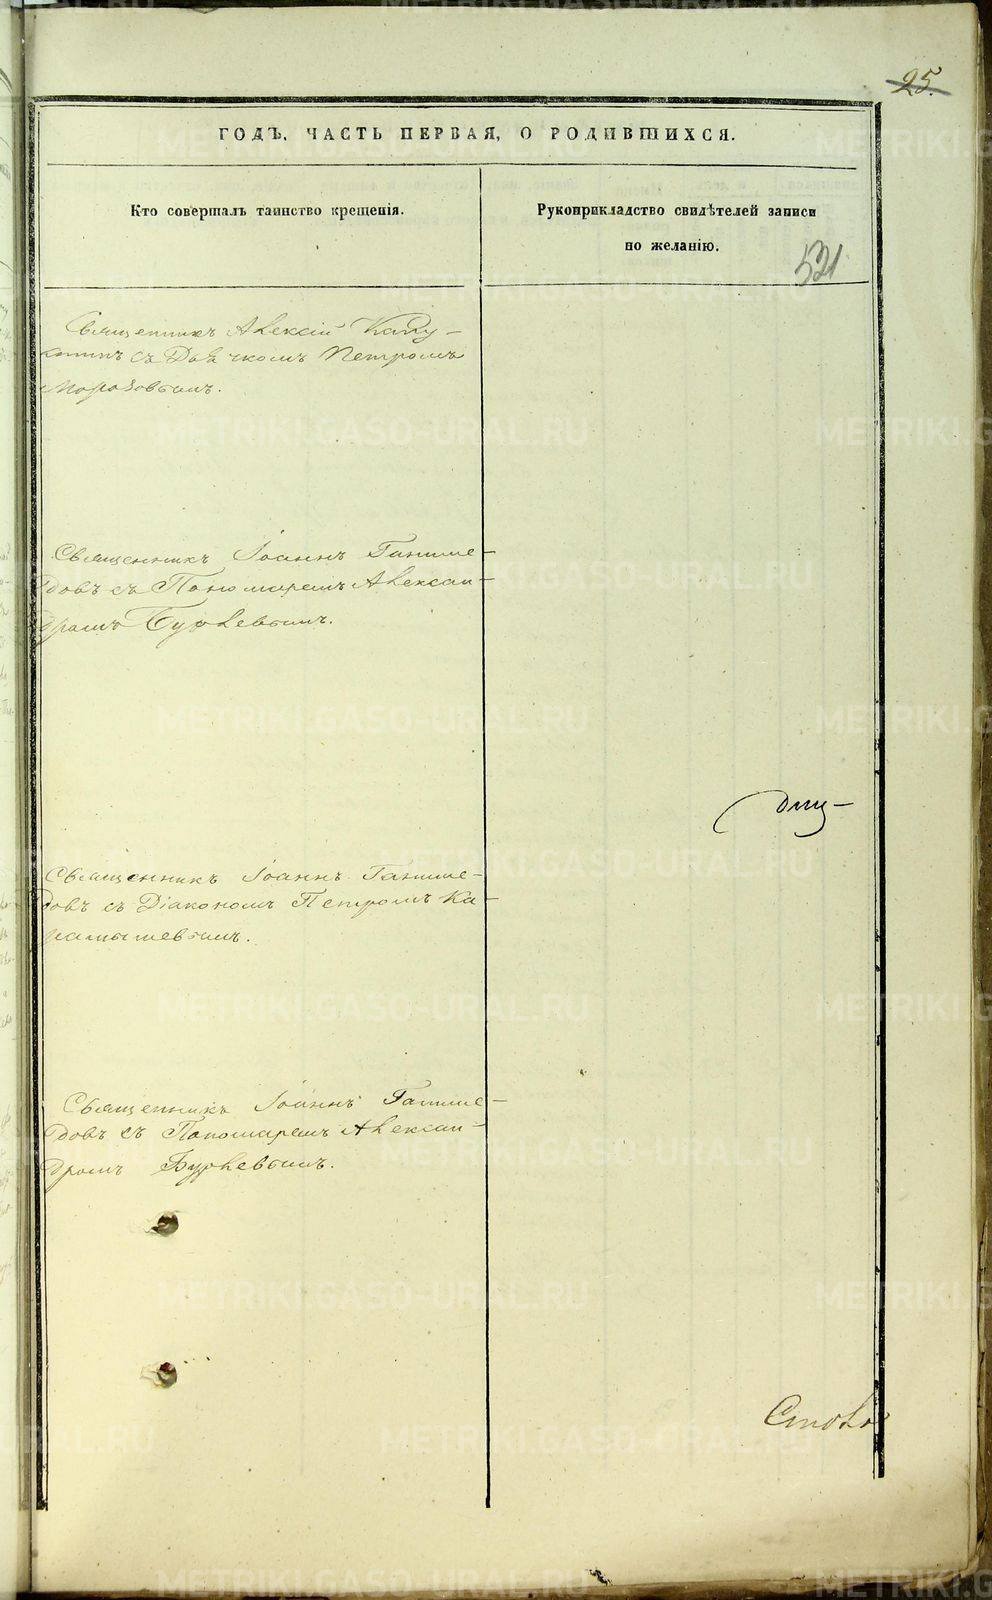 25.
ГОДЪ, ЧАСТЬ ПЕРВАЯ, О РОДИВШИХСЯ.
Кто совершалъ таинство крещенія.
Рукоприкладство свидѣтелей записи
по желанію.
531
Священникъ Алексій
съ Дьячкомъ Петромъ
Морозовымъ.
Священникъ Іоаннъ Ганиме-
довъ съ Пономаремъ Алексан-
дромъ Бурлевымъ.
дищ-
Священникъ Іоаннъ Ганиме-
довъ съ Діакономъ Петромъ Ка-
рамышевымъ.
Священникъ Іоаннъ Ганиме-
довъ съ Пономаремъ Алексан-
дромъ Бурлевымъ.
METRIKI.GASO-URAL.RU